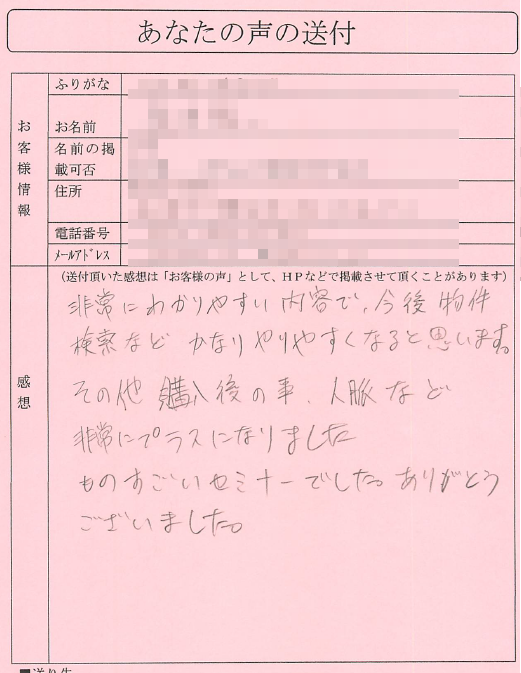 あなたの声の送付
ふりがな
お客様情報
お名前
名前の掲
載可否
住所
電話番号
ﾒｰﾙｱﾄﾞﾚｽ
(送付頂いた感想は「お客様の声」として、HPなどで掲載させて頂くことがあります)
感想
非常にわかりやすい内容で、今後物件
検索など かなりやりやすくなると思います。
その他 購入後の事、人脈など
非常にプラスになりました
ものすごいセミナーでした。ありがとう
ございました。
■送り先